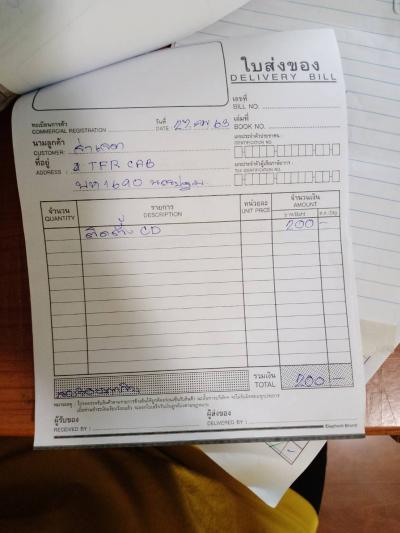 ใบส่งของ
DELIVERY BILL
เลขที่
BILL NO.
ทะเบียนการค้า
COMMERCIAL REGISTRATION
วันที่
DATE 27 กพ 63
เล่มที่
BOOK NO.
นามลูกค้า
CUSTOMER:
เลขประจำตัวประชาชน
IDENTIFICATION NO.
ที่อยู่
ADDRESS : TFR CAB
เลขประจำตัวผู้เสียภาษีอากร
TAX IDENTIFICATION NO.
1690
จำนวน
QUANTITY
รายการ
DESCRIPTION
หน่วยละ
UNIT PRICE
จำนวนเงิน
AMOUNT
บาท/Baht
ส.ต./Stg.
ติดตั้ง CD 200 -
รวมเงิน
TOTAL 200 -
หมายเหตุ :
ผู้รับของ
RECEIVED BY :
ผู้ส่งของ
DELIVERED BY :
Elephant Brand